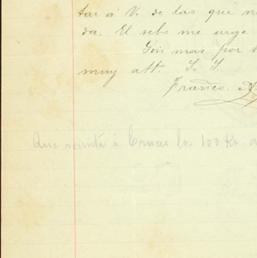 tar á V. de las que n
da. El sebo me urge
Sin mas por
muy att. S. S.
Franco. A
Que á Cruces los 100 Ks.